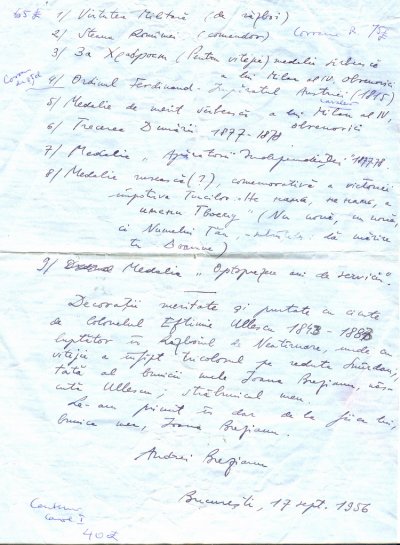 1/ Virtutea Militară (de război)
2/ Steaua României (comandor) Coroana R
3/ За Храброст (Pentru vitejie) medalie sârbească
a lui Milan al IV, Obrenovici
4/ Ordinul Ferdinand - Împăratul Austriei (1815)
5/ Medalie de merit sârbească a lui Milan al IV,
Obrenovici
6/ Trecerea Dunării 1877-1878
7/ Medalia „Apărătorii Independenței" 1877-78
8/ Medalie rusească (?), comemorativă a victoriei
împotriva turcilor „Не намъ, не намъ, а
имени Твоему" (Nu nouă, nu nouă,
ci Numelui Tău, dă mărire
tu Doamne)
9/ Medalia „Optsprezece ani de serviciu".
Decorații meritate și purtate cu cinste
de Colonelul Eftimie Ullescu
luptător în Războiul de Neatârnare, unde cu
vitejie a înfipt tricolorul pe reduta Smârdan,
tată al bunicii mele Ioana Brezianu, născută
Ullescu, străbunicul meu.
Le-am primit în dar de la fiica lui,
bunica mea, Ioana Brezianu.
Andrei Brezianu
București, 17 sept. 1956
Carol I
40